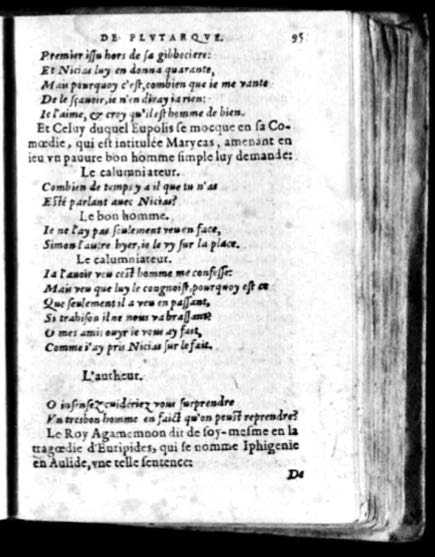 DE PLVTARQVE. 95
Premier issu hors de sa gibbeciere:
Et Nicias luy en donna quarante,
Mais pourquoy c'est, combien que ie me vante
De le sçauoir, ie n'en diray ia rien:
Ie l'aime, & croy qu'il est homme de bien.
Et Celuy duquel Eupolis se mocque en sa Co-
mœdie, qui est intitulée Marycas, amenant en
ieu vn pauure bon homme simple luy demande:
Le calumniateur.
Combien de temps y a il que tu n'as
Esté parlant auec Nicias?
Le bon homme.
Ie ne l'ay pas seulement veu en face,
Sinon l'autre hyer, ie le vy sur la place.
Le calumniateur.
Ia l'auoir veu cest homme me confesse:
Mais veu que luy le congnoist, pourquoy est ce
Que seulement il a veu en passant,
Si trahison il ne nous va brassant?
O mes amis ouyr ie vous ay fait,
Comme i'ay pris Nicias sur le fait.
L'autheur.
O insensez, cuideriez vous surprendre
Vn tresbon homme en faict qu'on peust reprendre?
Le Roy Agamemnon dit de soy-mesme en la
tragœdie d'Euripides, qui se nomme Iphigenie
en Aulide, vne telle sentence:
De